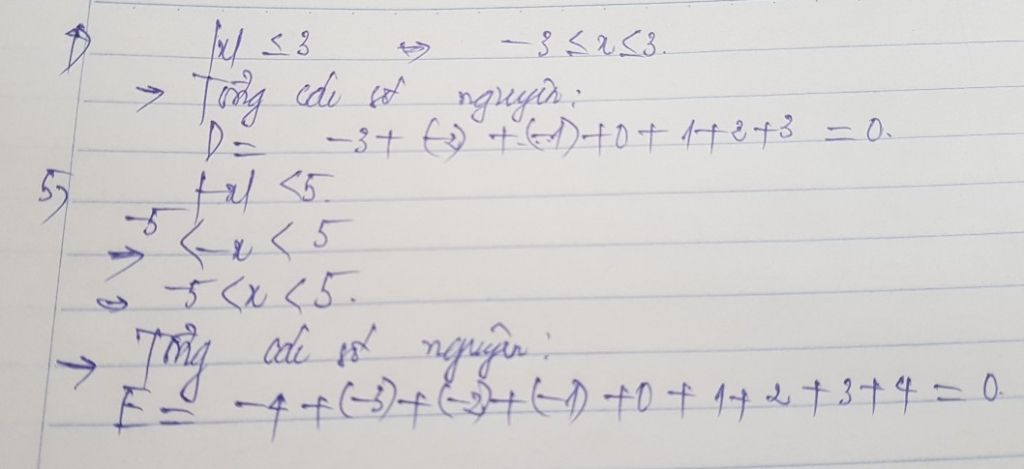 |x| ≤ 3 ⇔ -3 ≤ x ≤ 3.
→ Tổng các số nguyên:
D = -3 + (-2) + (-1) + 0 + 1 + 2 + 3 = 0.
5) |-x| < 5.
→ -5 < -x < 5
⇔ -5 < x < 5.
→ Tổng các số nguyên:
E = -4 + (-3) + (-2) + (-1) + 0 + 1 + 2 + 3 + 4 = 0.